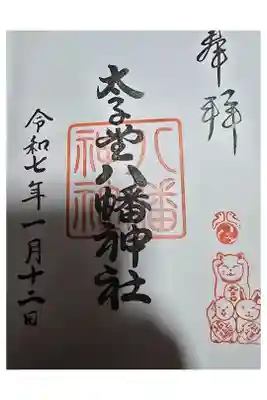 奉拝
太子堂八幡神社
八幡神社
令和七年一月十二日